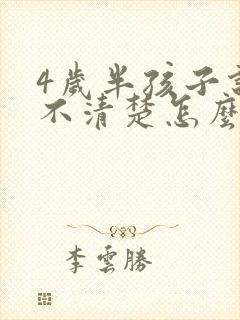 4歲半孩子
不清楚怎麼
李雲勝